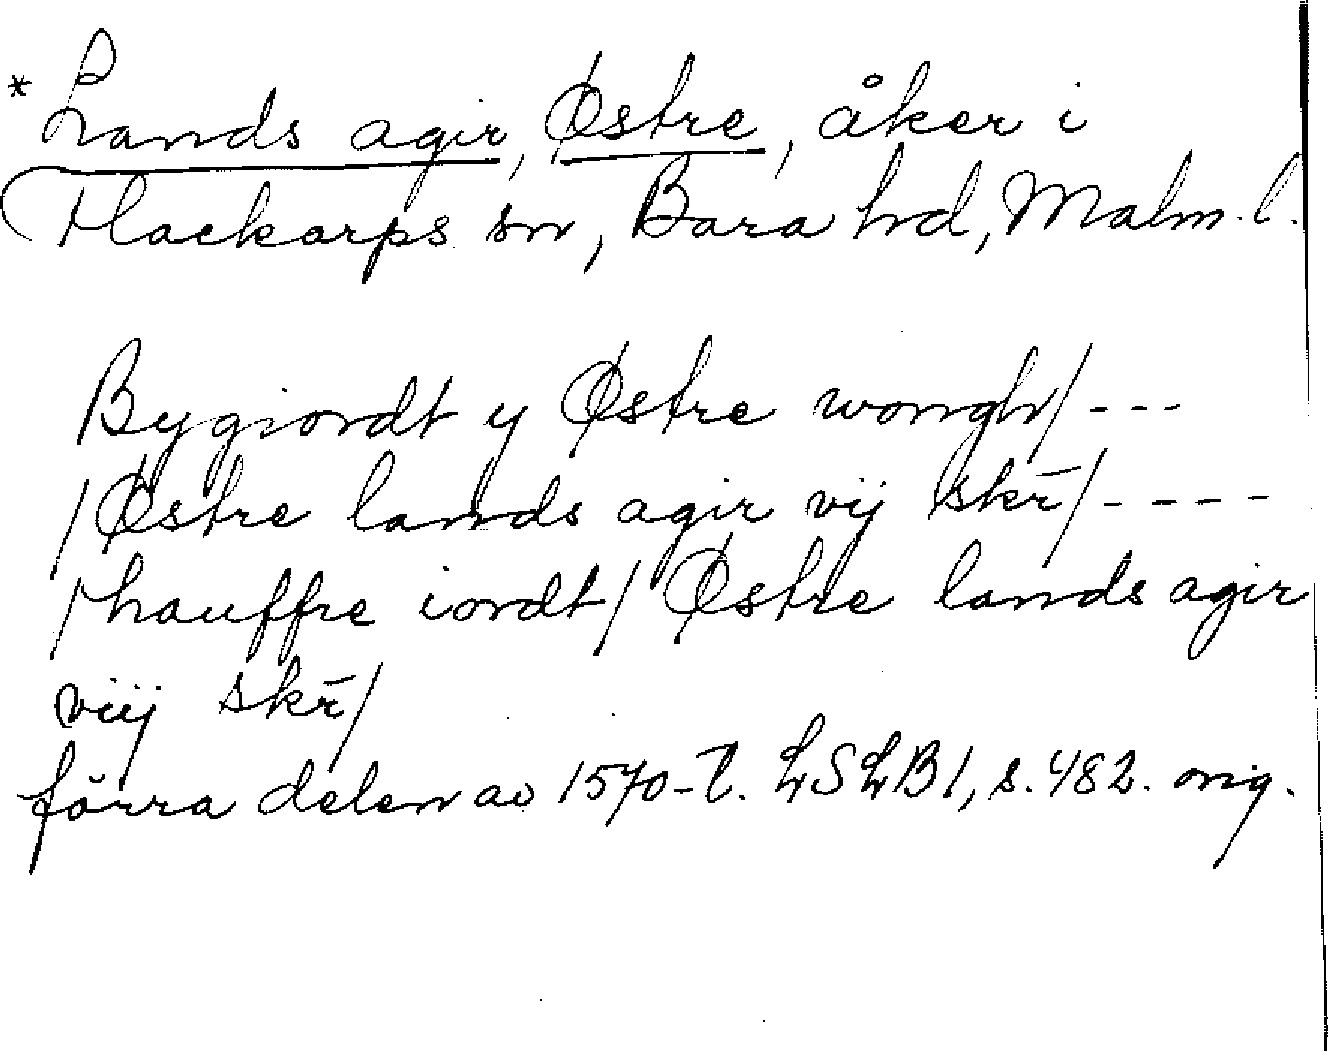 *Lands agir, Østre, åker i
Hackarps sn, Bara hd, Malm.l.
Bygiordt y Østre wongh/---
/Østre lands agir vij skr̄/----
/hauffre iordt/ Østre lands agir
viij skr̄/
förra delen av 1570-t. LSLB1, s. 482. orig.